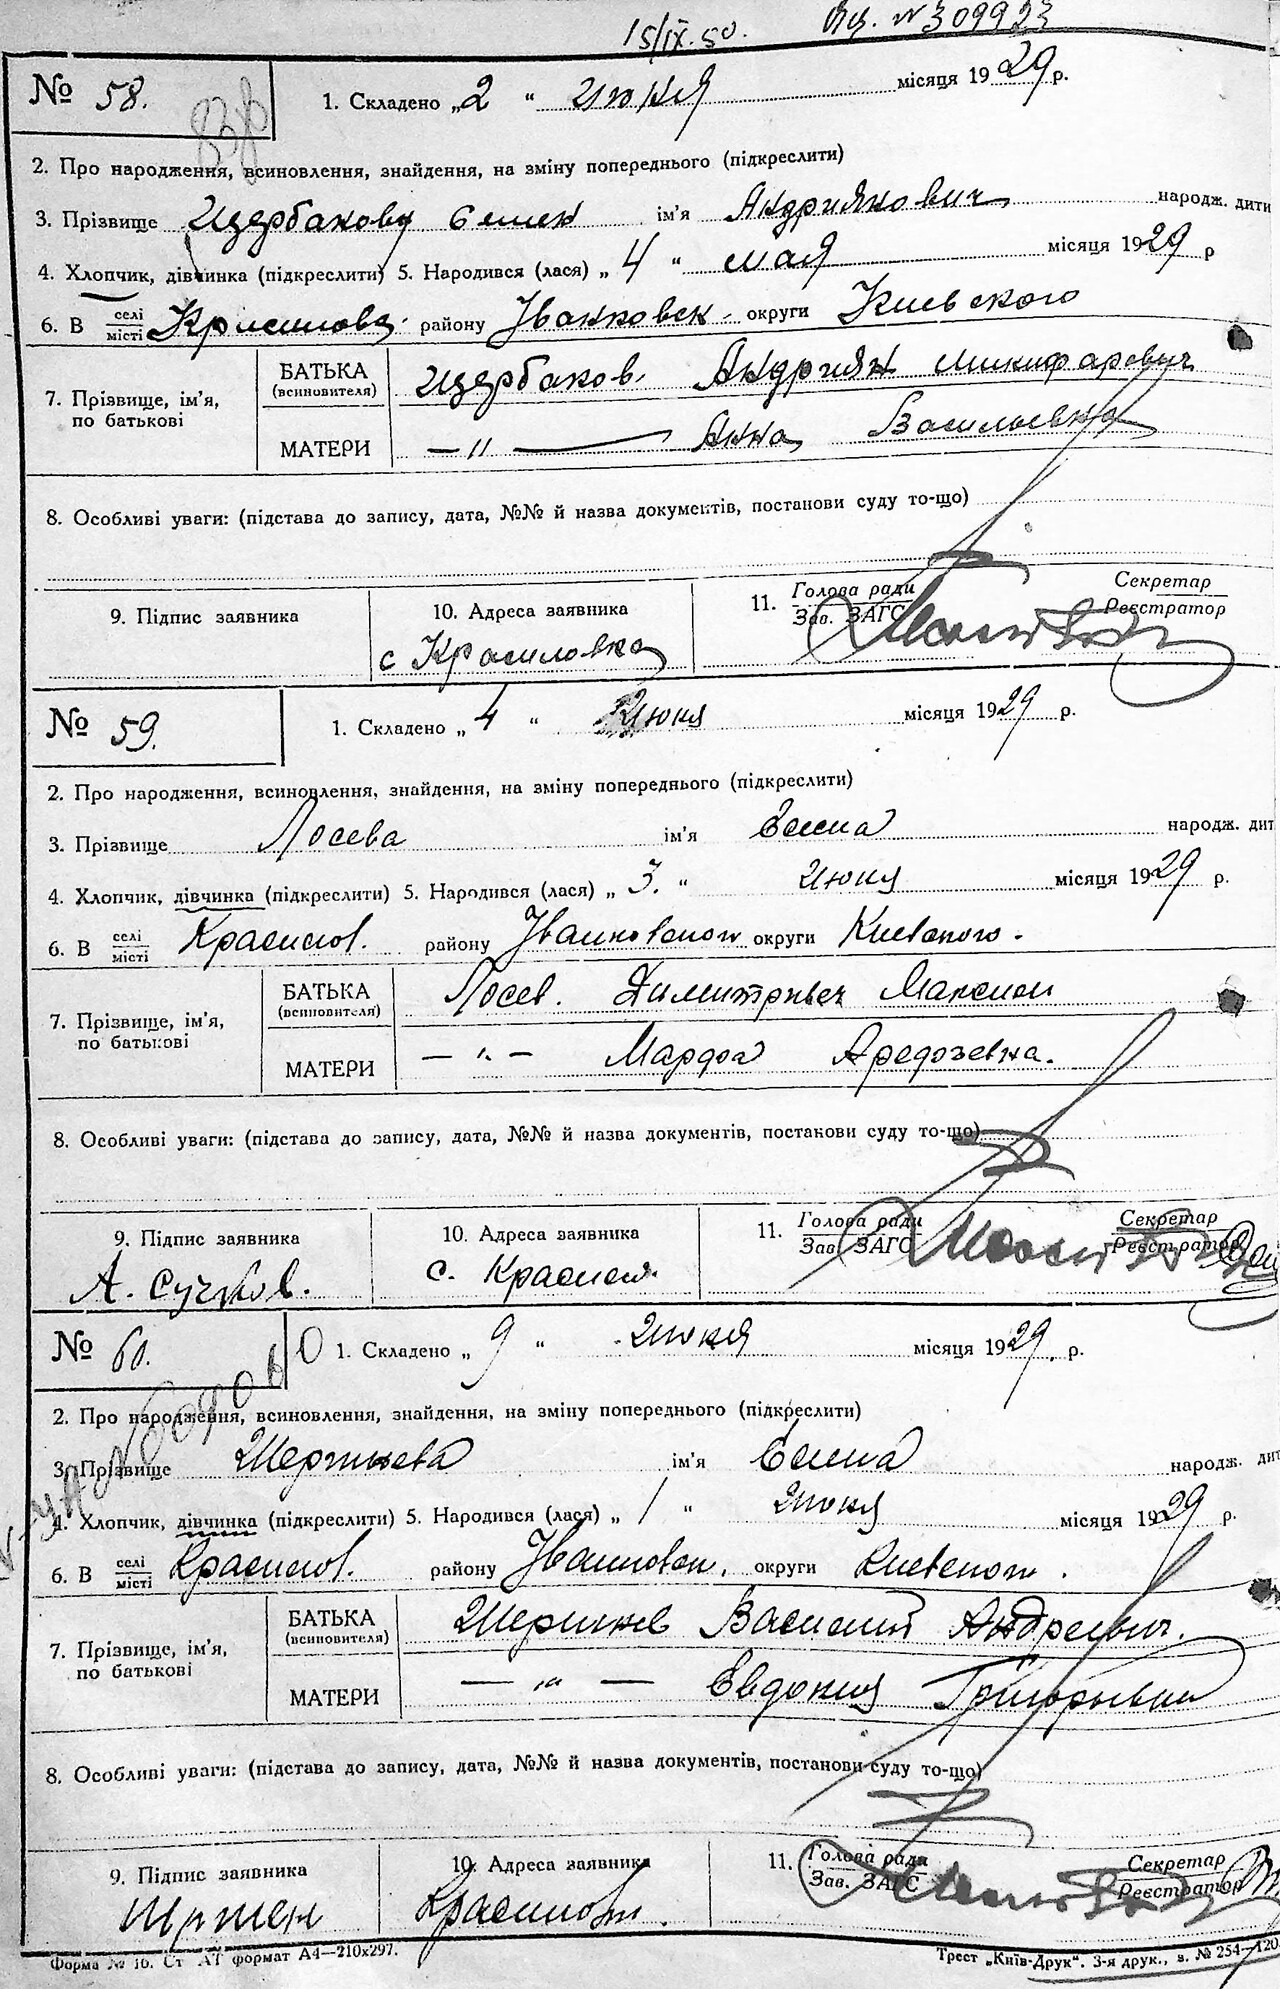 15/IX.50. № 309923
№ 58. 1. Складено „2“ Июня місяця 1929 р.
2. Про народження, всиновлення, знайдення, на зміну попереднього (підкреслити)
3. Прізвище Щербаков Семен ім'я Андриянович народж. дити
4. Хлопчик, дівчинка (підкреслити) 5. Народився (лася) „4“ мая місяця 1929 р
6. В селі місті Красиловка району Іванковск. округи Киевского
7. Прізвище, ім'я, по батькові
БАТЬКА (всиновителя) Щербаков. Андриян Микифарович
МАТЕРИ —〃— Анна Васильевна
8. Особливі уваги: (підстава до запису, дата, №№ й назва документів, постанови суду то-що)
9. Підпис заявника 10. Адреса заявника 11. Голова ради Зав. ЗАГС Секретар Реєстратор
с Красиловка
№ 59. 1. Складено „4“ Июня місяця 1929 р.
2. Про народження, всиновлення, знайдення, на зміну попереднього (підкреслити)
3. Прізвище Лосева ім'я Елена народж. дит
4. Хлопчик, дівчинка (підкреслити) 5. Народився (лася) „3.“ Июня місяця 1929 р.
6. В селі місті Красилов. району Іванковского округи Киевского.
7. Прізвище, ім'я, по батькові
БАТЬКА (всиновителя) Лосев. Димитриевич Максим
МАТЕРИ —〃— Марфа
8. Особливі уваги: (підстава до запису, дата, №№ й назва документів, постанови суду то-що)
9. Підпис заявника 10. Адреса заявника 11. Голова ради Зав. ЗАГС Секретар Реєстратор
А. Сучков. с. Красилов.
№ 60. 1. Складено „9“ Июня місяця 1929. р.
2. Про народження, всиновлення, знайдення, на зміну попереднього (підкреслити)
3. Прізвище ім'я Елена народж. дит
4. Хлопчик, дівчинка (підкреслити) 5. Народився (лася) „1“ Июня місяця 1929 р.
6. В селі місті Красилов. району Іванковск. округи Киевского.
7. Прізвище, ім'я, по батькові
БАТЬКА (всиновителя) Василий Андреевич.
МАТЕРИ —〃— Евдокия Григорьевна
8. Особливі уваги: (підстава до запису, дата, №№ й назва документів, постанови суду то-що)
9. Підпис заявника 10. Адреса заявника 11. Голова ради Зав. ЗАГС Секретар Реєстратор
Форма № 16. Ст АТ формат А4—210х297. Трест „Київ-Друк“. 3-я друк., з. № 254—120.